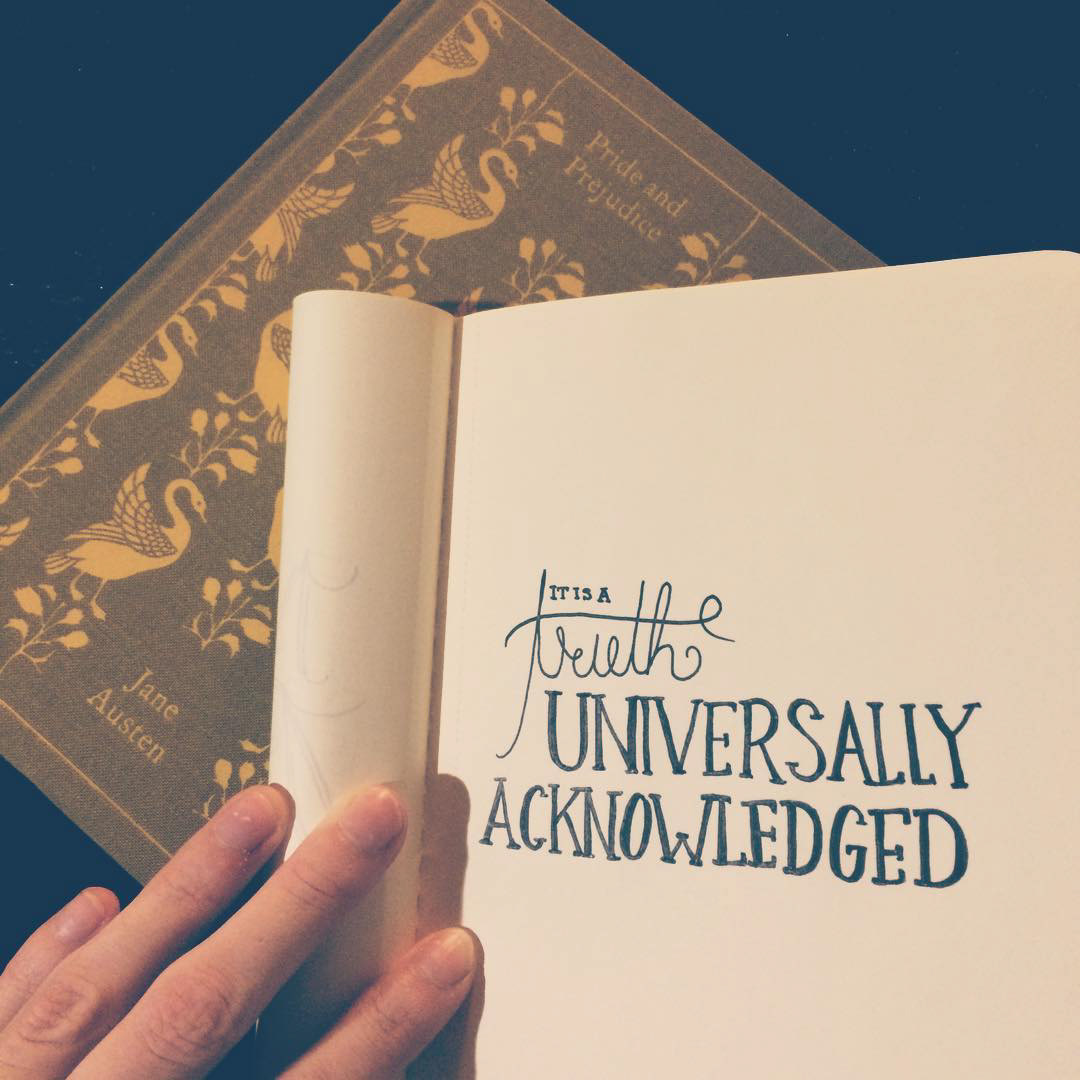 Pride and
Prejudice
Jane
Austen
IT IS A
truth
UNIVERSALLY
ACKNOWLEDGED